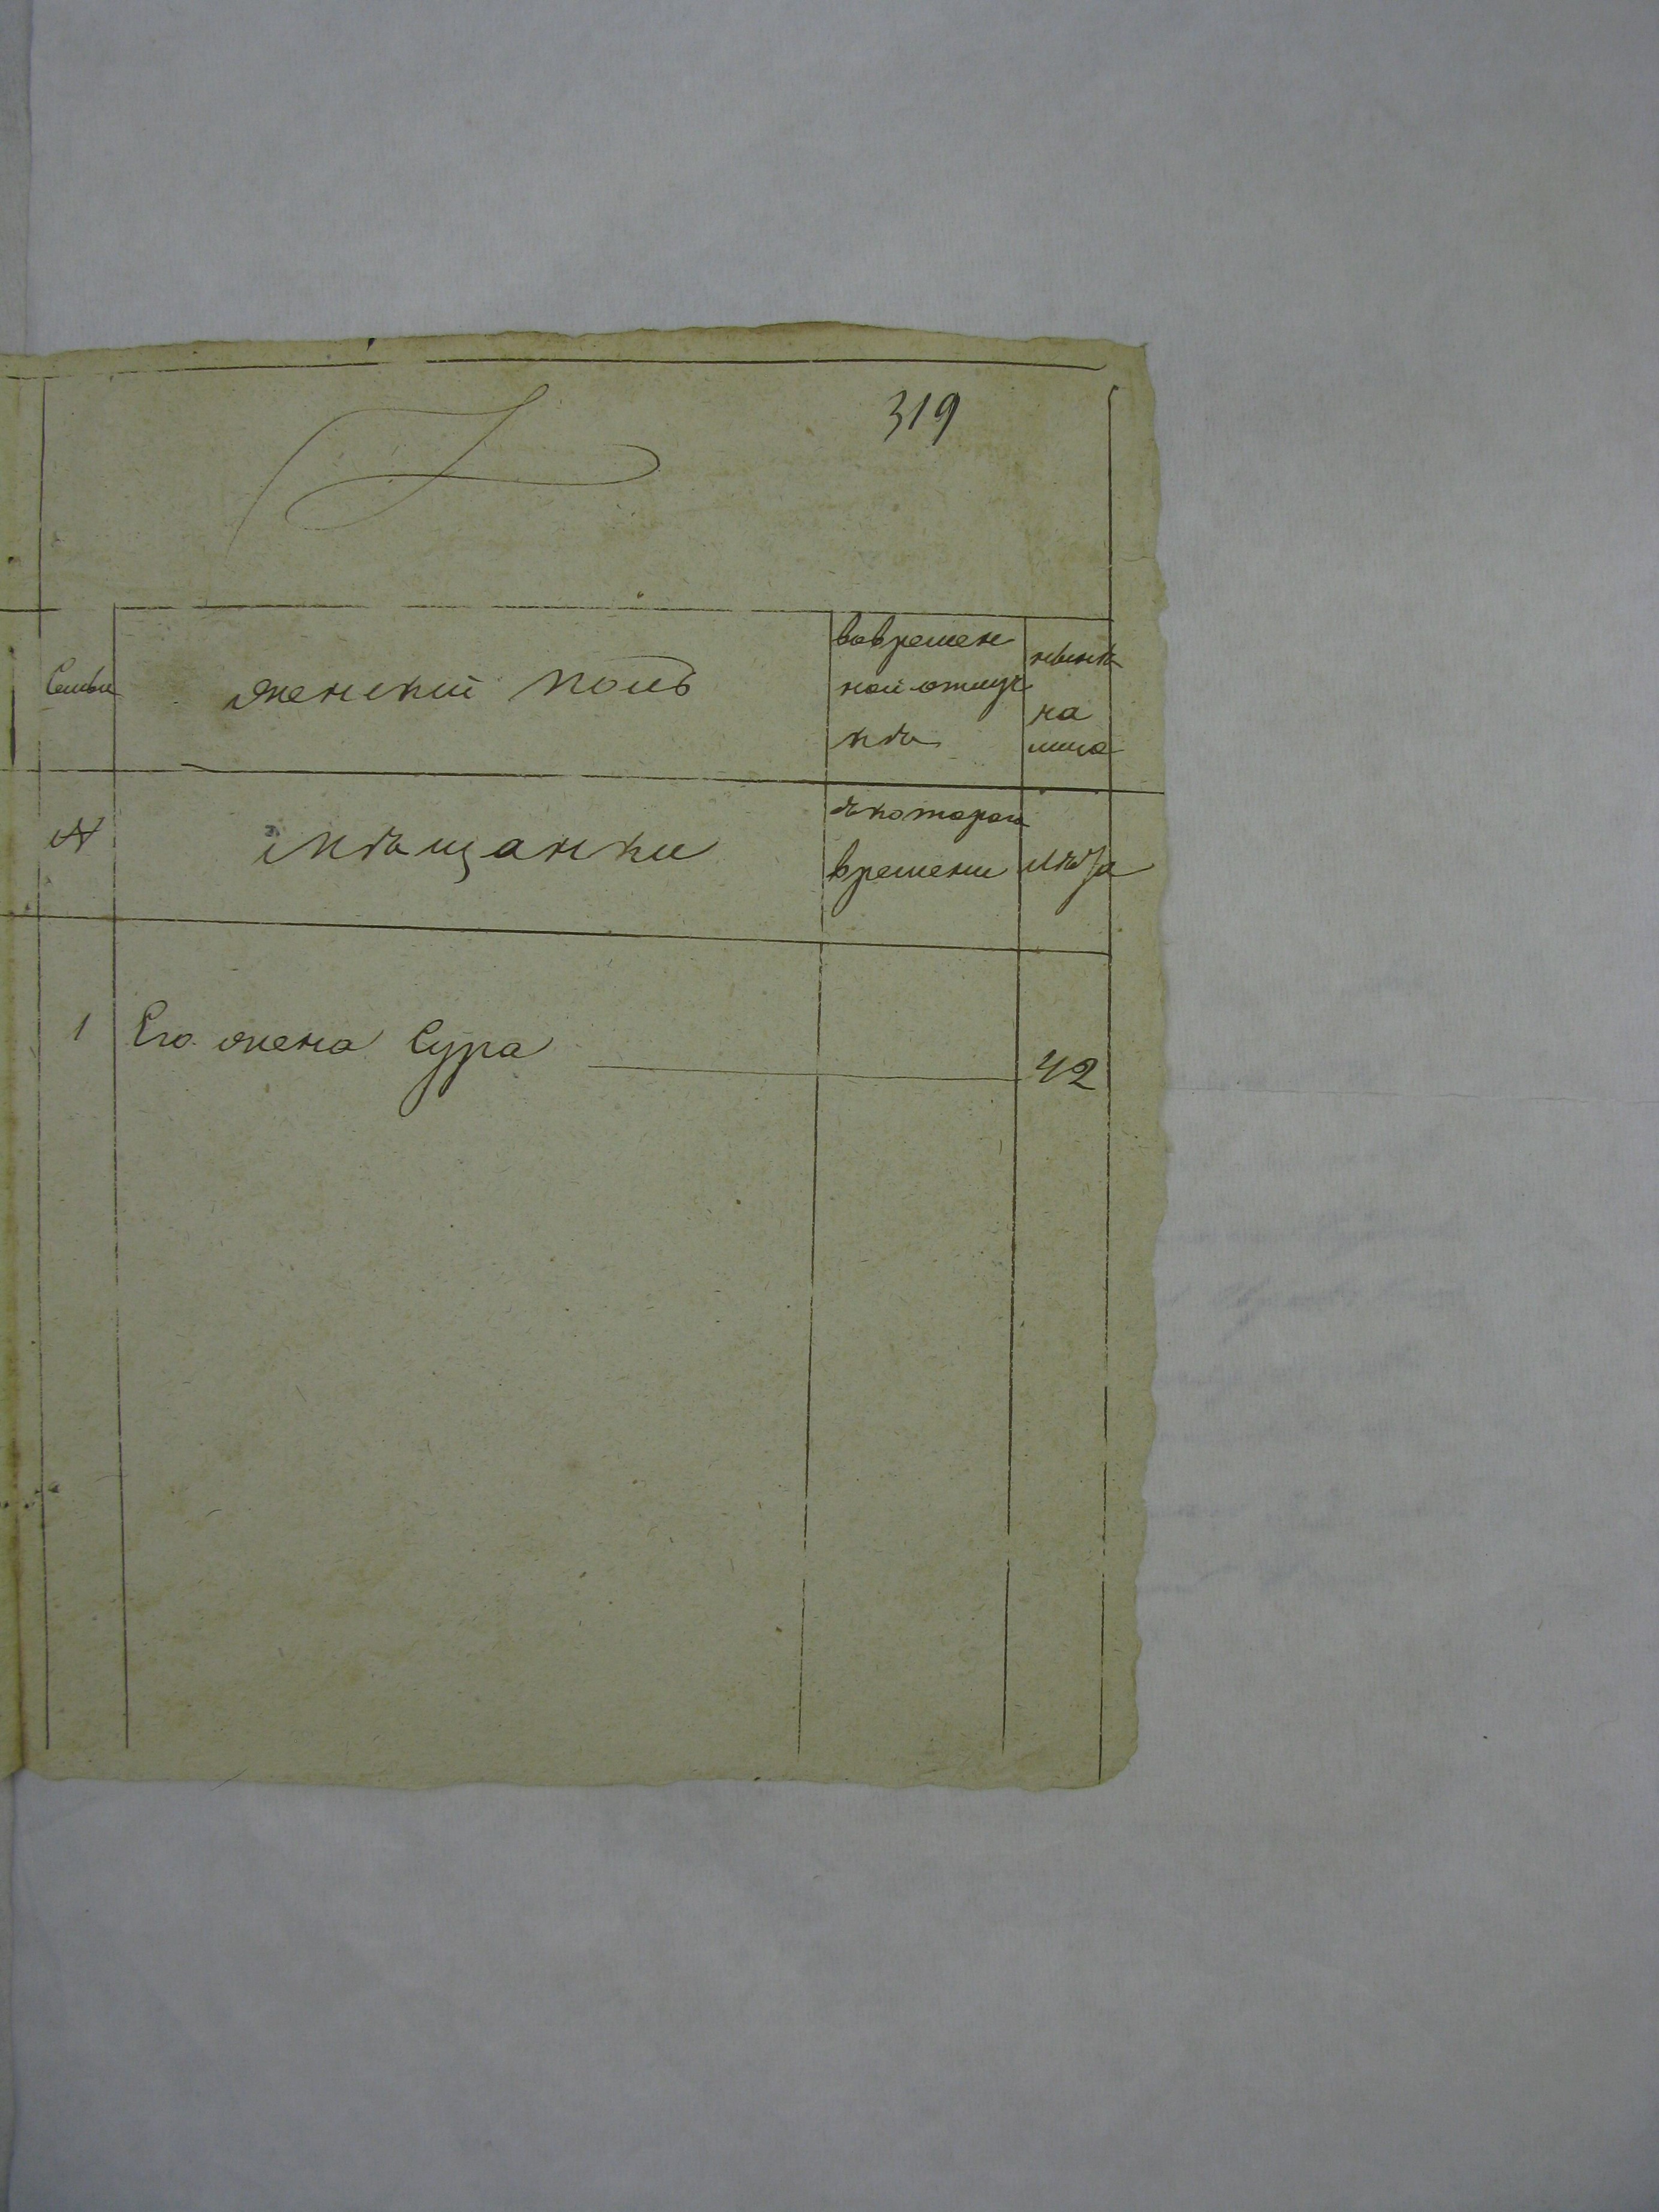 319
Семьи
женскій полъ
вовремен
ной отлуч
кѣ
нынѣ
на
лицо
№
мѣщанки
съкоторого
времени
лѣта
1
Его жена Сура
42